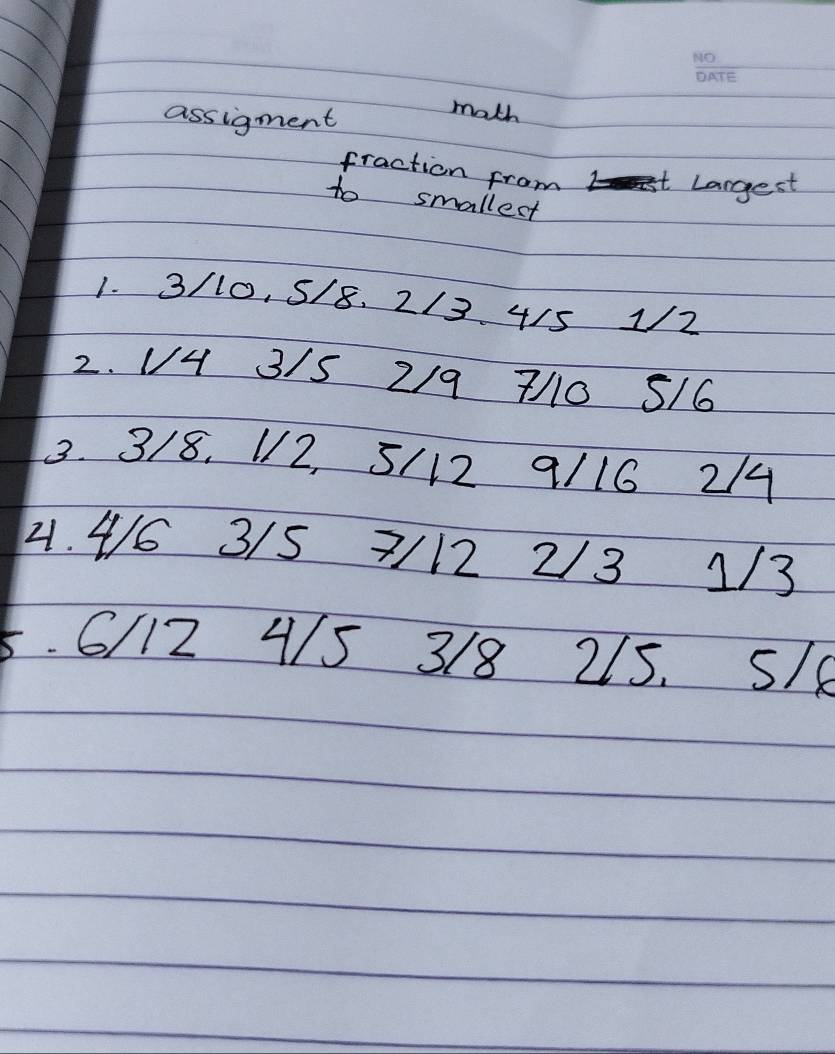 NO
DATE
assigment math
fraction from Largest
to smallest
1. 3/10, 5/8, 2/3. 4/5 1/2
2. 1/4 3/5 2/9 7/10 5/6
3. 3/8, 1/2, 5/12 9/16 2/4
4. 4/6 3/5 7/12 2/3 1/3
5. 6/12 4/5 3/8 2/5. 5/6